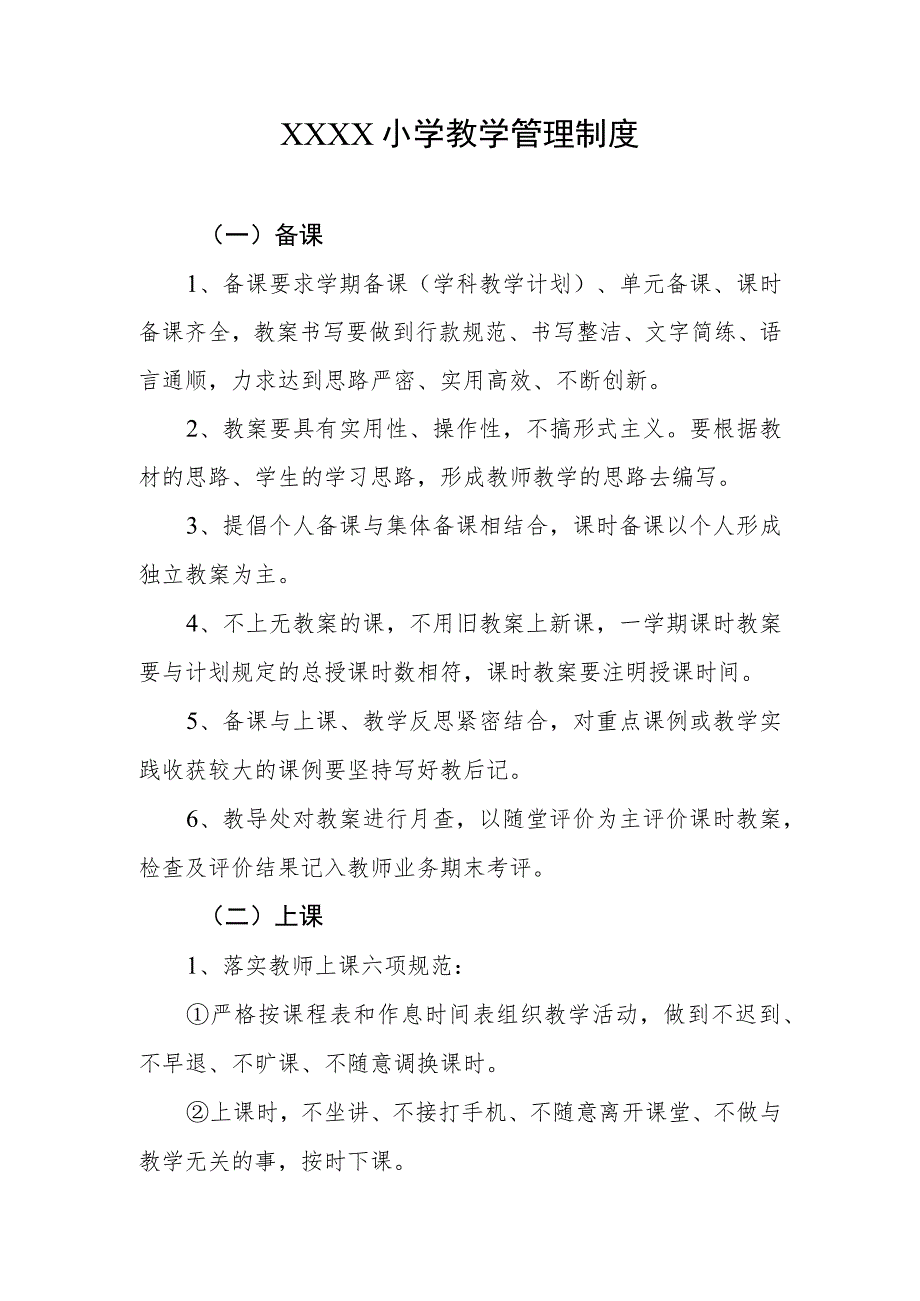 XXXX 小学教学管理制度
（一）备课
1、备课要求学期备课（学科教学计划）、单元备课、课时
备课齐全，教案书写要做到行款规范、书写整洁、文字简练、语
言通顺，力求达到思路严密、实用高效、不断创新。
2、教案要具有实用性、操作性，不搞形式主义。要根据教
材的思路、学生的学习思路，形成教师教学的思路去编写。
3、提倡个人备课与集体备课相结合，课时备课以个人形成
独立教案为主。
4、不上无教案的课，不用旧教案上新课，一学期课时教案
要与计划规定的总授课时数相符，课时教案要注明授课时间。
5、备课与上课、教学反思紧密结合，对重点课例或教学实
践收获较大的课例要坚持写好教后记。
6、教导处对教案进行月查，以随堂评价为主评价课时教案，
检查及评价结果记入教师业务期末考评。
（二）上课
1、落实教师上课六项规范：
①严格按课程表和作息时间表组织教学活动，做到不迟到、
不早退、不旷课、不随意调换课时。
②上课时，不坐讲、不接打手机、不随意离开课堂、不做与
教学无关的事，按时下课。